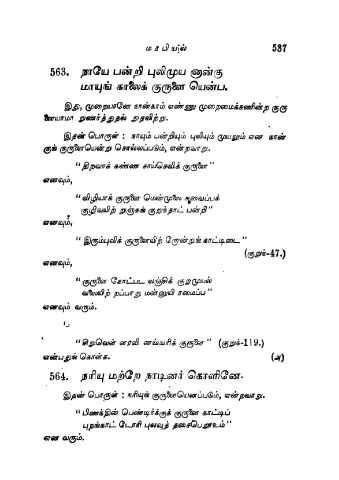 மரபியல் 537
563. நாயே பன்றி புலிமுய னான்கு
மாயுங் காலைக் குருளை யென்ப.
இது, முறையானே நான்காம் எண்ணு முறைமைக்கணின்ற குரு
ளையாமா றுணர்த்துதல் நுதலிற்று.
இதன் பொருள் : நாயும் பன்றியும் புலியும் முயலும் என நான்
குங் குருளையென்று சொல்லப்படும், என்றவாறு.
“திறவாக் கண்ண சாய்செவிக் குருளை”
எனவும்,
“விழியாக் குருளை மென்முலை சுவைப்பக்
குழிவயிற் றுஞ்சுங் குறுந்தாட் பன்றி”
எனவும்,
“இரும்புலிக் குருளையிற் றோன்றுங் காட்டிடை”
(குறுக்-47.)
எனவும்,
“குருளை கோட்பட லஞ்சிக் குறுமுயல்
வலையிற் றப்பாது மன்னுயி ரமைப்ப”
எனவும் வரும்.
“சிறுவெள் ளரவி னவ்வரிக் குருளை” (குறுக்-119.)
என்பதுங் கொள்க. (அ)
564. நரியு மற்றே நாடினர் கொளினே.
இதன் பொருள் : நரியுங் குருளையெனப்படும், என்றவாறு.
“பிணந்தின் பெண்டிர்க்குக் குருளை காட்டிப்
புறங்காட் டோரி புலவுத் தசைபெறூஉம்”
என வரும்.